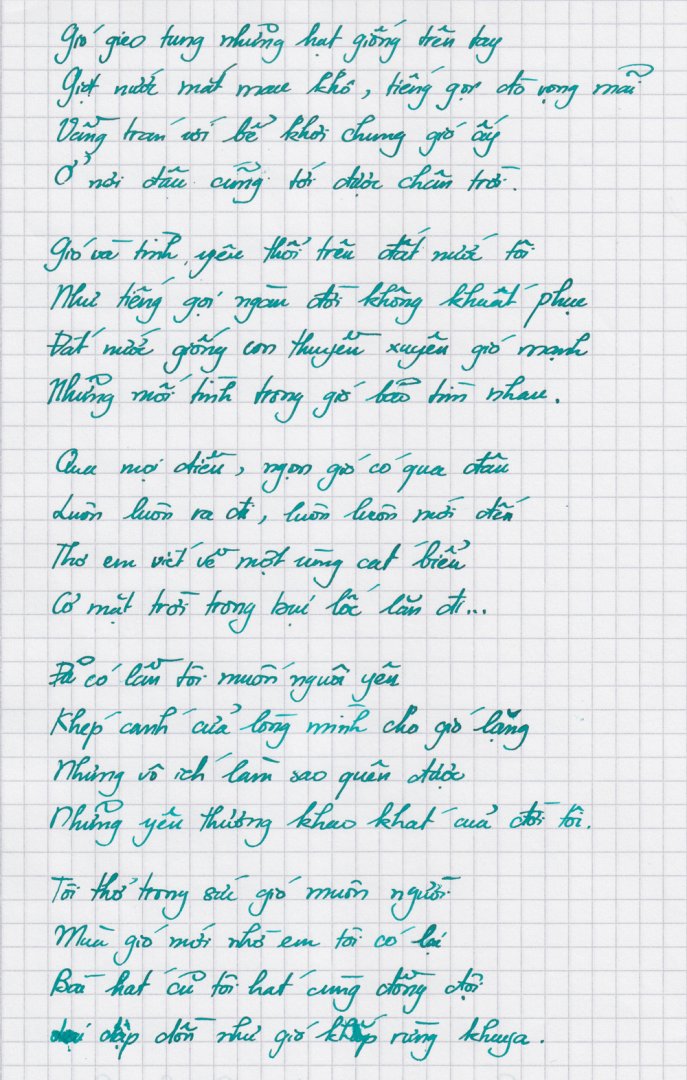 Gió gieo tung những hạt giống trên tay
Giọt nước mắt mau khô, tiếng gọi đò vọng mãi
Vầng trán với bể khơi chung gió ấy
Ở nơi đâu cũng tới được chân trời.
Gió và tình yêu thổi trên đất nước tôi
Như tiếng gọi ngàn đời không khuất phục
Đất nước giống con thuyền xuyên gió mạnh
Những mối tình trong gió bão tìm nhau.
Qua mọi điều, ngọn gió có qua đâu
Luôn luôn ra đi, luôn luôn mới đến
Thơ em viết về một vùng cát biển
Có mặt trời trong bụi lốc lăn đi...
Đã có lần tôi muốn nguôi yên
Khép cánh cửa lòng mình cho gió lặng
Nhưng vô ích làm sao quên được
Những yêu thương khao khát của đời tôi.
Tôi thở trong sức gió muôn người
Mùa gió mới nhờ em tôi có lại
Bài hát cũ tôi hát cùng đồng đội
dập dồn như gió khắp rừng khuya.